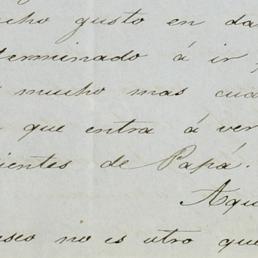 cho gusto en da
terminado á ir
mucho mas cua
que entra á ver
ientes de Papá.
Aqu
seo no es otro que